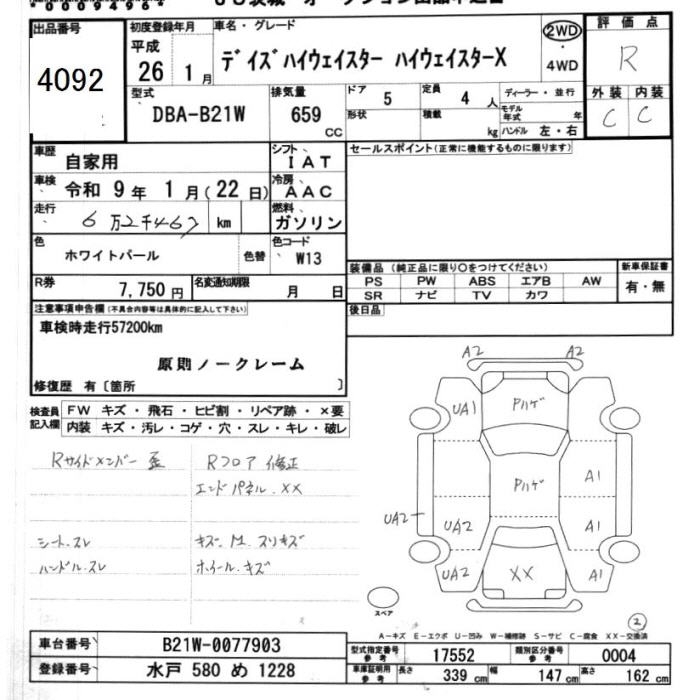 00094964
出品番号
4092
初度登録年月
平成
26 1月
車名・グレード
デイズハイウェイスター ハイウェイスターX
2WD
・
4WD
評価点
R
外装 内装
C C
型式
DBA-B21W
排気量
659
CC
ドア
5
形状
定員
4 人
積載
kg
ディーラー・並行
モデル年式 年
ハンドル 左・右
車歴
自家用
シフト
IAT
車検
令和 9年 1月(22日)
冷房
AAC
走行
6万2千463 km
燃料
ガソリン
色
ホワイトパール
色替
色コード
W13
R券
7,750円
名変通知期限
月 日
セールスポイント(正常に機能するものに限ります)
装備品(純正品に限り〇をつけてください)
PS PW ABS エアB AW
SR ナビ TV カワ
新車保証書
有・無
後日品
注意事項申告欄(不具合内容等は具体的に記入して下さい)
車検時走行57200km
原則ノークレーム
修復歴 有〔箇所 〕
検査員記入欄
FW キズ・飛石・ヒビ割・リペア跡・×要
内装 キズ・汚レ・コゲ・穴・スレ・キレ・破レ
Rサイドメンバー 歪
Rフロア 修正
エンドパネル.XX
シート.スレ
キズ.M.スリキズ
ハンドル.スレ
ホイール.キズ
A2 A2
UA1
Pハゲ
Pハゲ
A1
UA2
UA2
A1
UA2
XX
A1
スペア
2
A-キズ E-エクボ U-凹み W-補修跡 S-サビ C-腐食 XX-交換済
車台番号
B21W-0077903
登録番号
水戸 580 め 1228
型式指定番号
参考
17552
類別区分番号
参考
0004
車庫証明用
参考
長さ
339 cm
幅
147 cm
高さ
162 cm